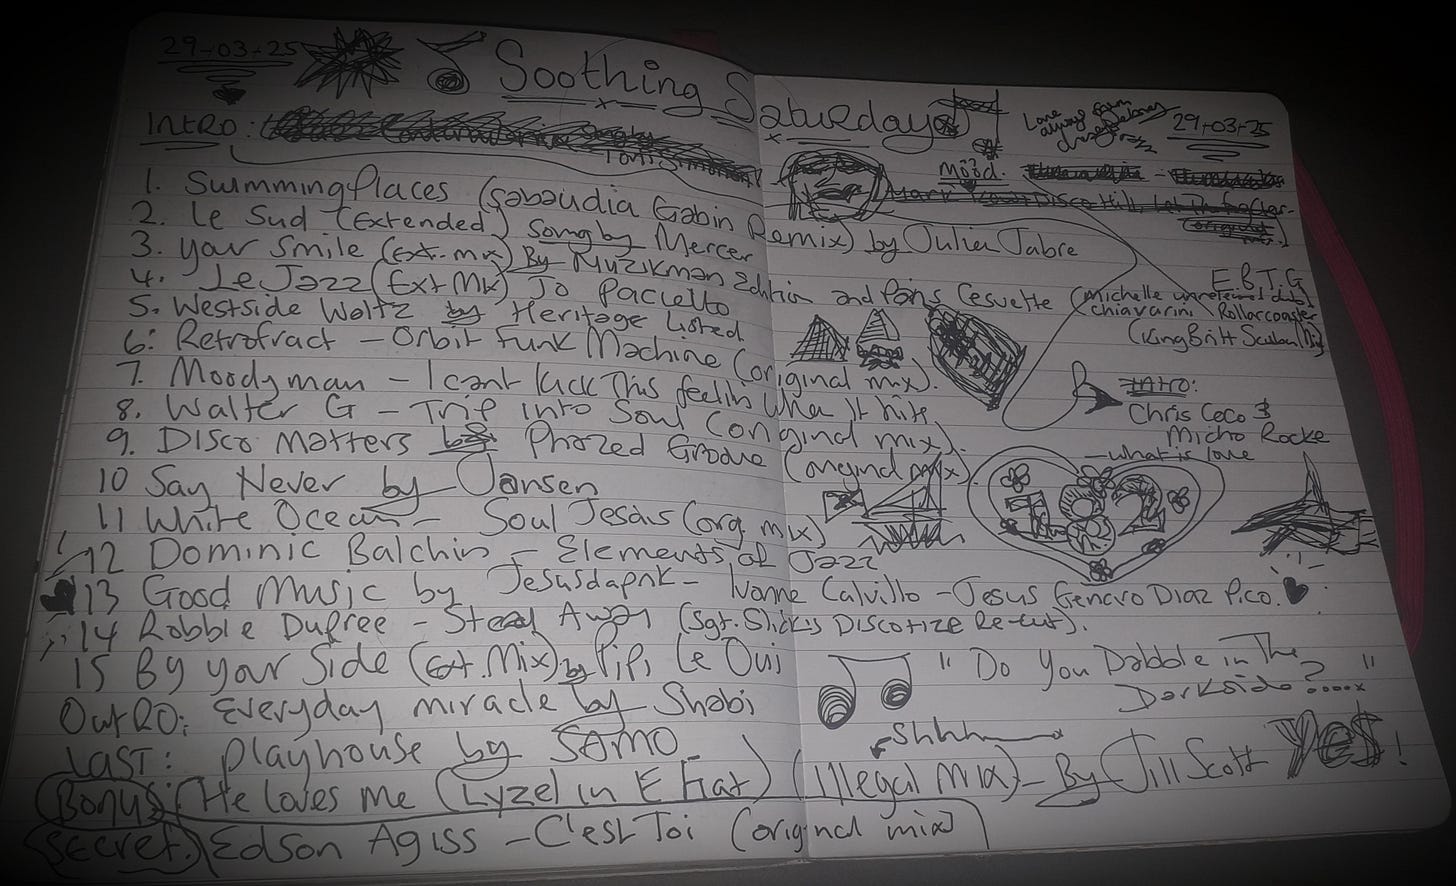 29-03-25
Soothing Saturdays
29-03-25
Love always
INTRO:
Mood.
1. Swimming Places (Sabaudia Gabin Remix) by Julien Jabre
2. Le Sud (Extended) Song by Mercer
3. Your Smile (Ext. mix) By Muzikman Edition and Pans Cesvette (Michelle Chiavarini
4. Le Jazz (Ext Mix) To Paciello
5. Westside Waltz by Heritage Listed
E.B.T.G
Rollercoaster
(King Britt Scuba
6: Retrofract - Orbit Funk Machine (original mix).
7. Moodyman - I cant kick This feelin When It hits
8. Walter G - Trip into Soul (original mix).
9. Disco Matters by Phazed Groove (original mix).
Intro:
Chris Coco &
Micho Rocke
- what is love
10 Say Never by Jansen
11 White Ocean - Soul Jesus (org. mix)
182
12 Dominic Balchin - Elements of Jazz
13 Good Music by Jesusdapnk - Ivonne Calvillo - Jesus Genaro Diaz Pico.
14 Robbie Dupree - Steal Away (Sgt. Slick's Discotize Re-cut).
15 By Your Side (Ext. Mix) by Pipi Le Oui
"Do You Dabble in The
Darkside?....x"
OutRO: Everyday miracle by Shabi
LAST: Playhouse by SAMO
Shhh
Bonus: He Loves Me (Lyzel in E Flat) (Illegal Mix) - By Jill Scott YES!
Secret. Edson Agiss - C'est Toi (original mix)